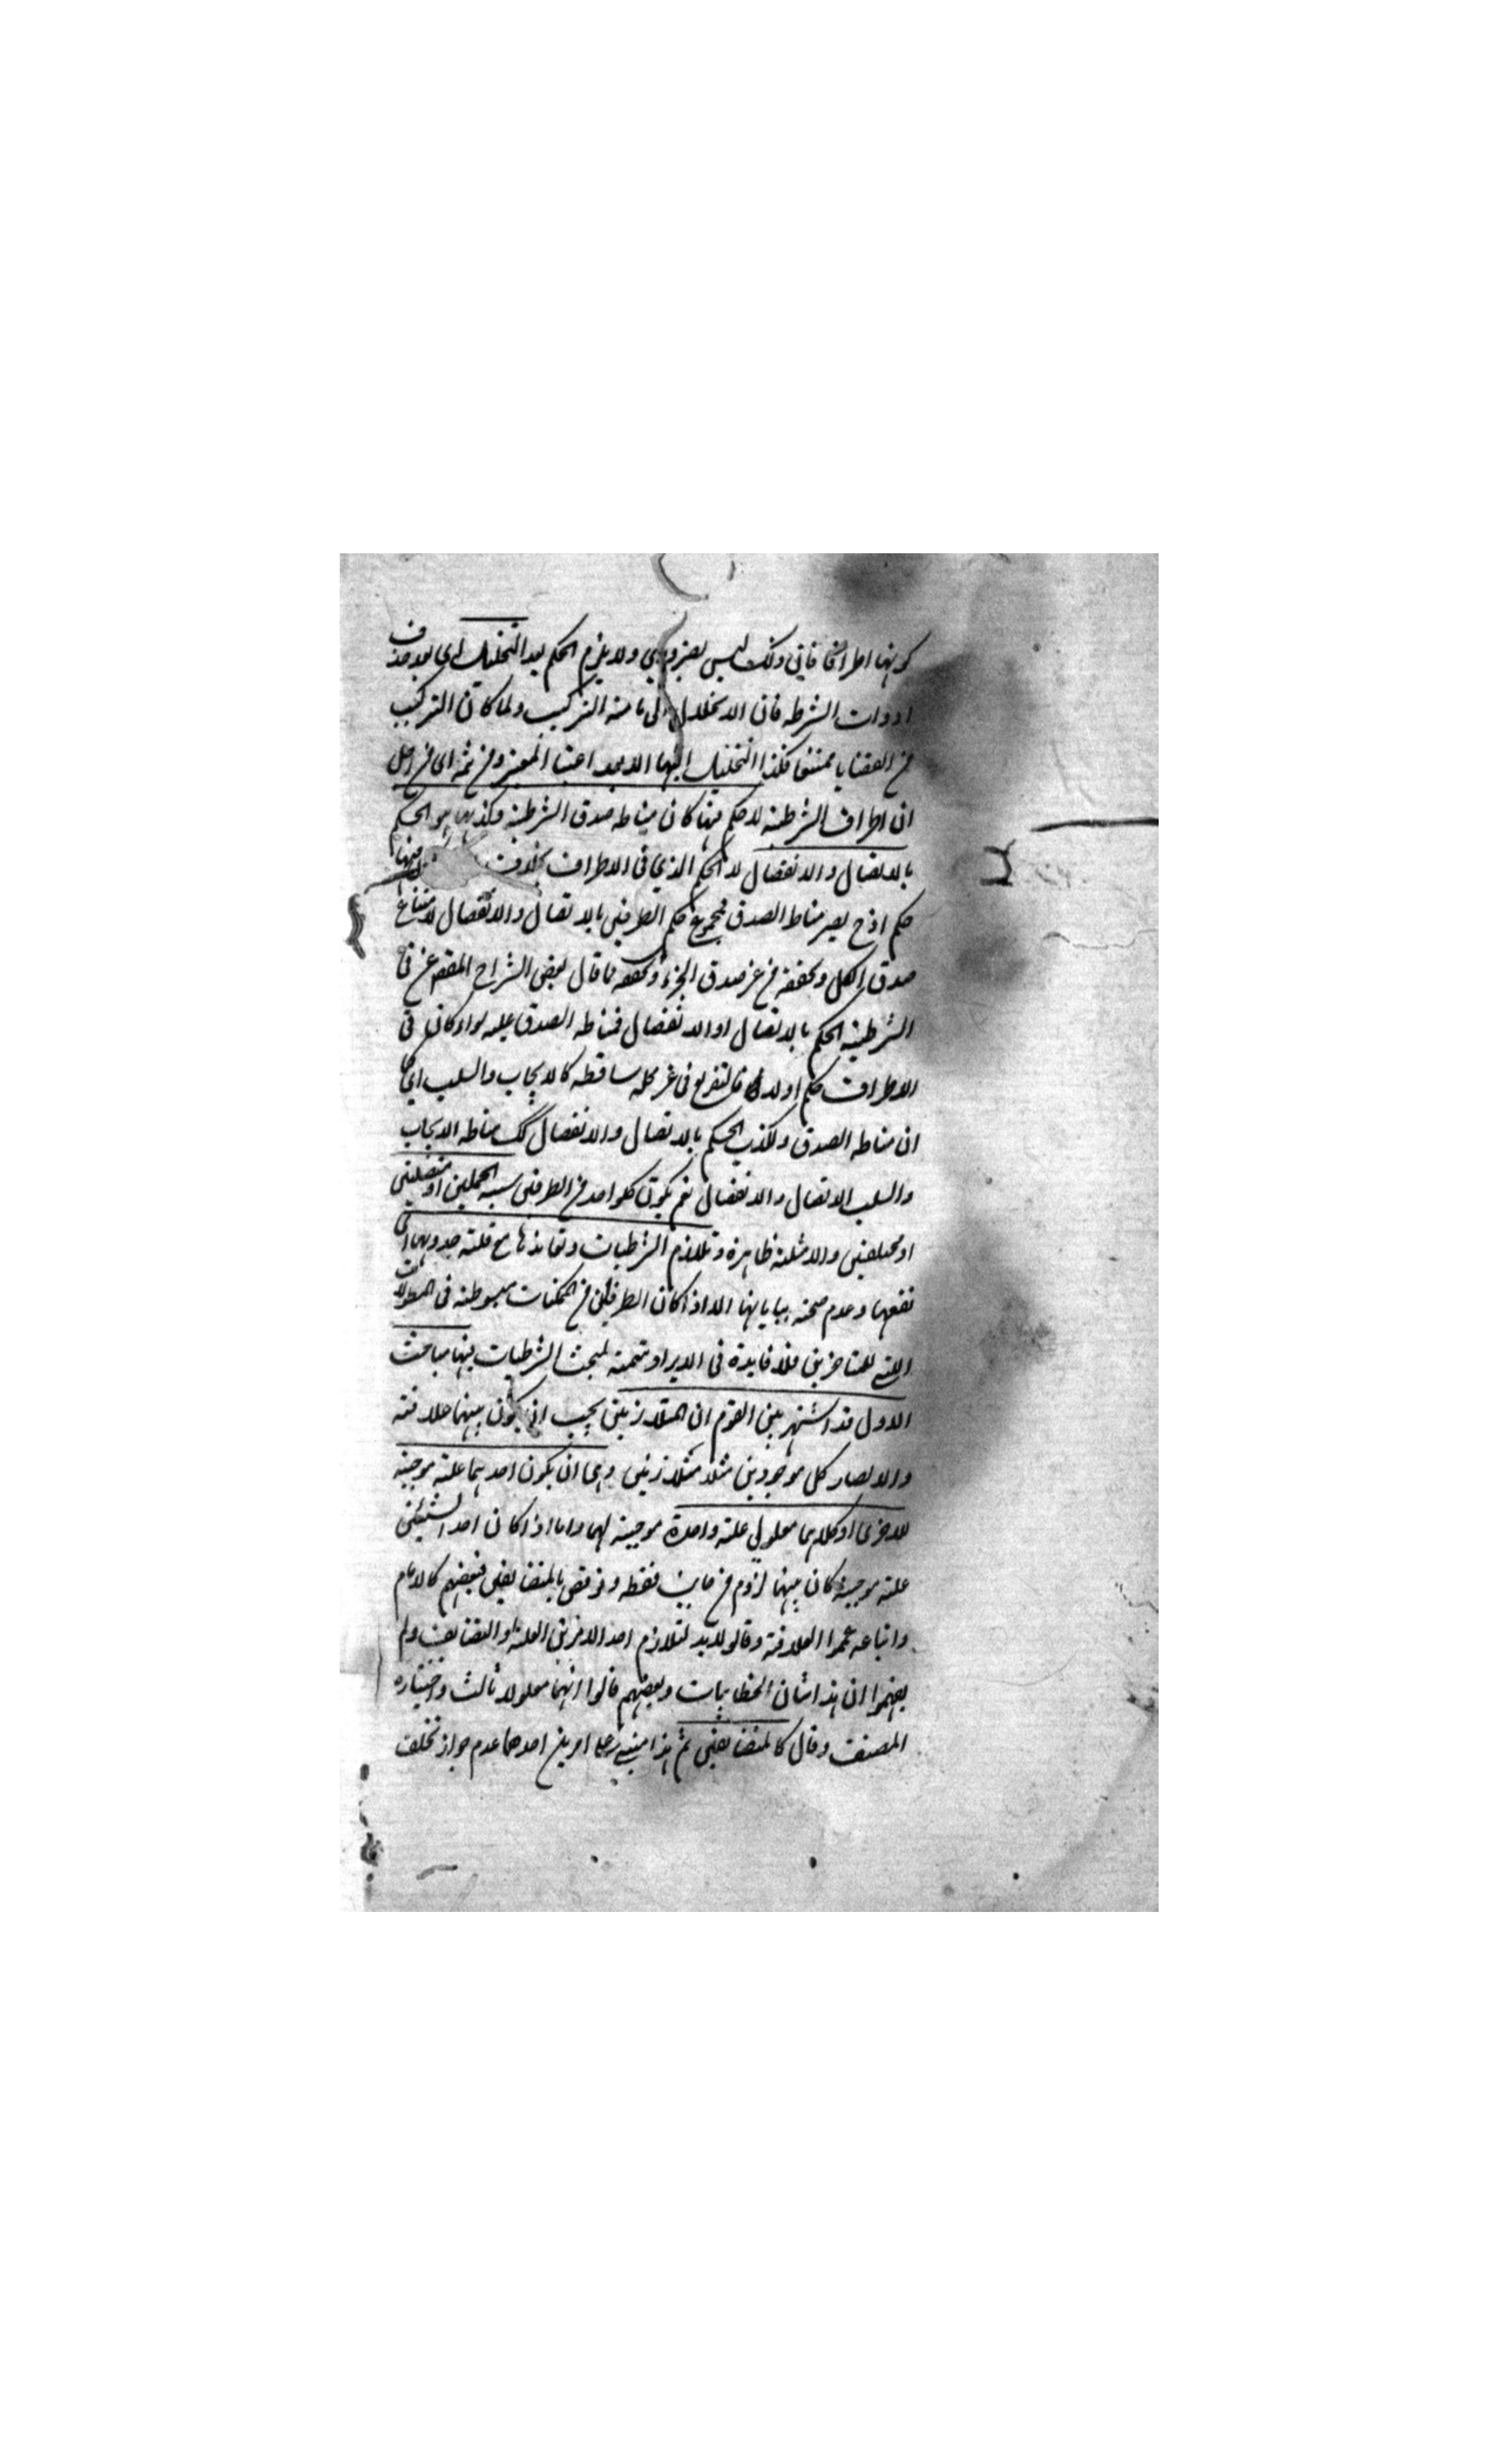 كونها اطرافا فاني وذلك ليس بضروري ولا يلزم الحكم بعد التحليل اى بعد حذف
ادوات الشرط فان الانحلال الى ما منه التركيب ولما كان التركيب
من القضايا ممتنعا فكذا التحليل اليها الا بعد اعتبار المعنى ومن ثمه اى من اجل
ان اطراف الشرطية لا حكم فيها كان مناط صدق الشرطية وكذبها هو الحكم
بالاتصال والانفصال لا الحكم الذي في الاطراف بخلاف فيها
حكم اذ ح يصير مناط الصدق مجموع حكم الطرفين بالاتصال والانفصال لامتناع
صدق الكل وتحققه من غير صدق الجزء وتحققه ما قال بعض الشراح المقصود في
الشرطية الحكم بالاتصال او الانفصال فمناط الصدق عليه سواء كان في
الاطراف حكم اولا فالتفريع في غير محله ساقط كالايجاب والسلب اى كما
ان مناط الصدق والكذب الحكم بالاتصال والانفصال كك مناط الايجاب
والسلب الاتصال والانفصال نعم يكون كلواحد من الطرفين شبيه الحمليتين او متصلتين
او مختلفتين والامثلة ظاهرة وتلازم الشرطيات وتعاندها مع قلة جدوىها اى
نفعها وعدم صحة بياناتها الا اذا كان الطرفان من الممكنات مبسوطة في المطولات
التي للمتاخرين فلا فايدة في الايراد تتمة لمبحث الشرطيات فيها مباحث
الاول قد اشتهر بين القوم ان المتلازمين يجب ان يكون بينهما علاقة
والا لصار كل موجودين مثلا متلازمين وهى ان يكون احدهما علة موجبة
للاخرى او كلاهما معلولي علة واحدة موجبة لهما واما اذا كان احد الشيئين
علة موجبة كان بينهما لزوم من جانب فقط ونوقض بالمتضايفين فبعضهم كالامام
واتباعه عمموا العلاقة وقالوا لابد لتلازم احد الامرين العلية او التضايف ولم
يفهموا ان هذا شان الخطابيات وبعضهم قالوا انهما معلولا ثالث واختياره
المصنف وقال كالمتضايفين ثم هذا مبني على امرين احدهما عدم جواز تخلف